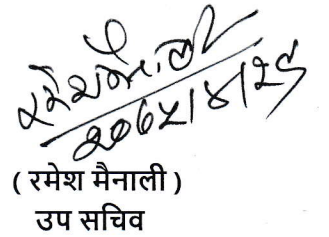 रमेश मैनाली
२०७५।४।२९
( रमेश मैनाली )
उप सचिव